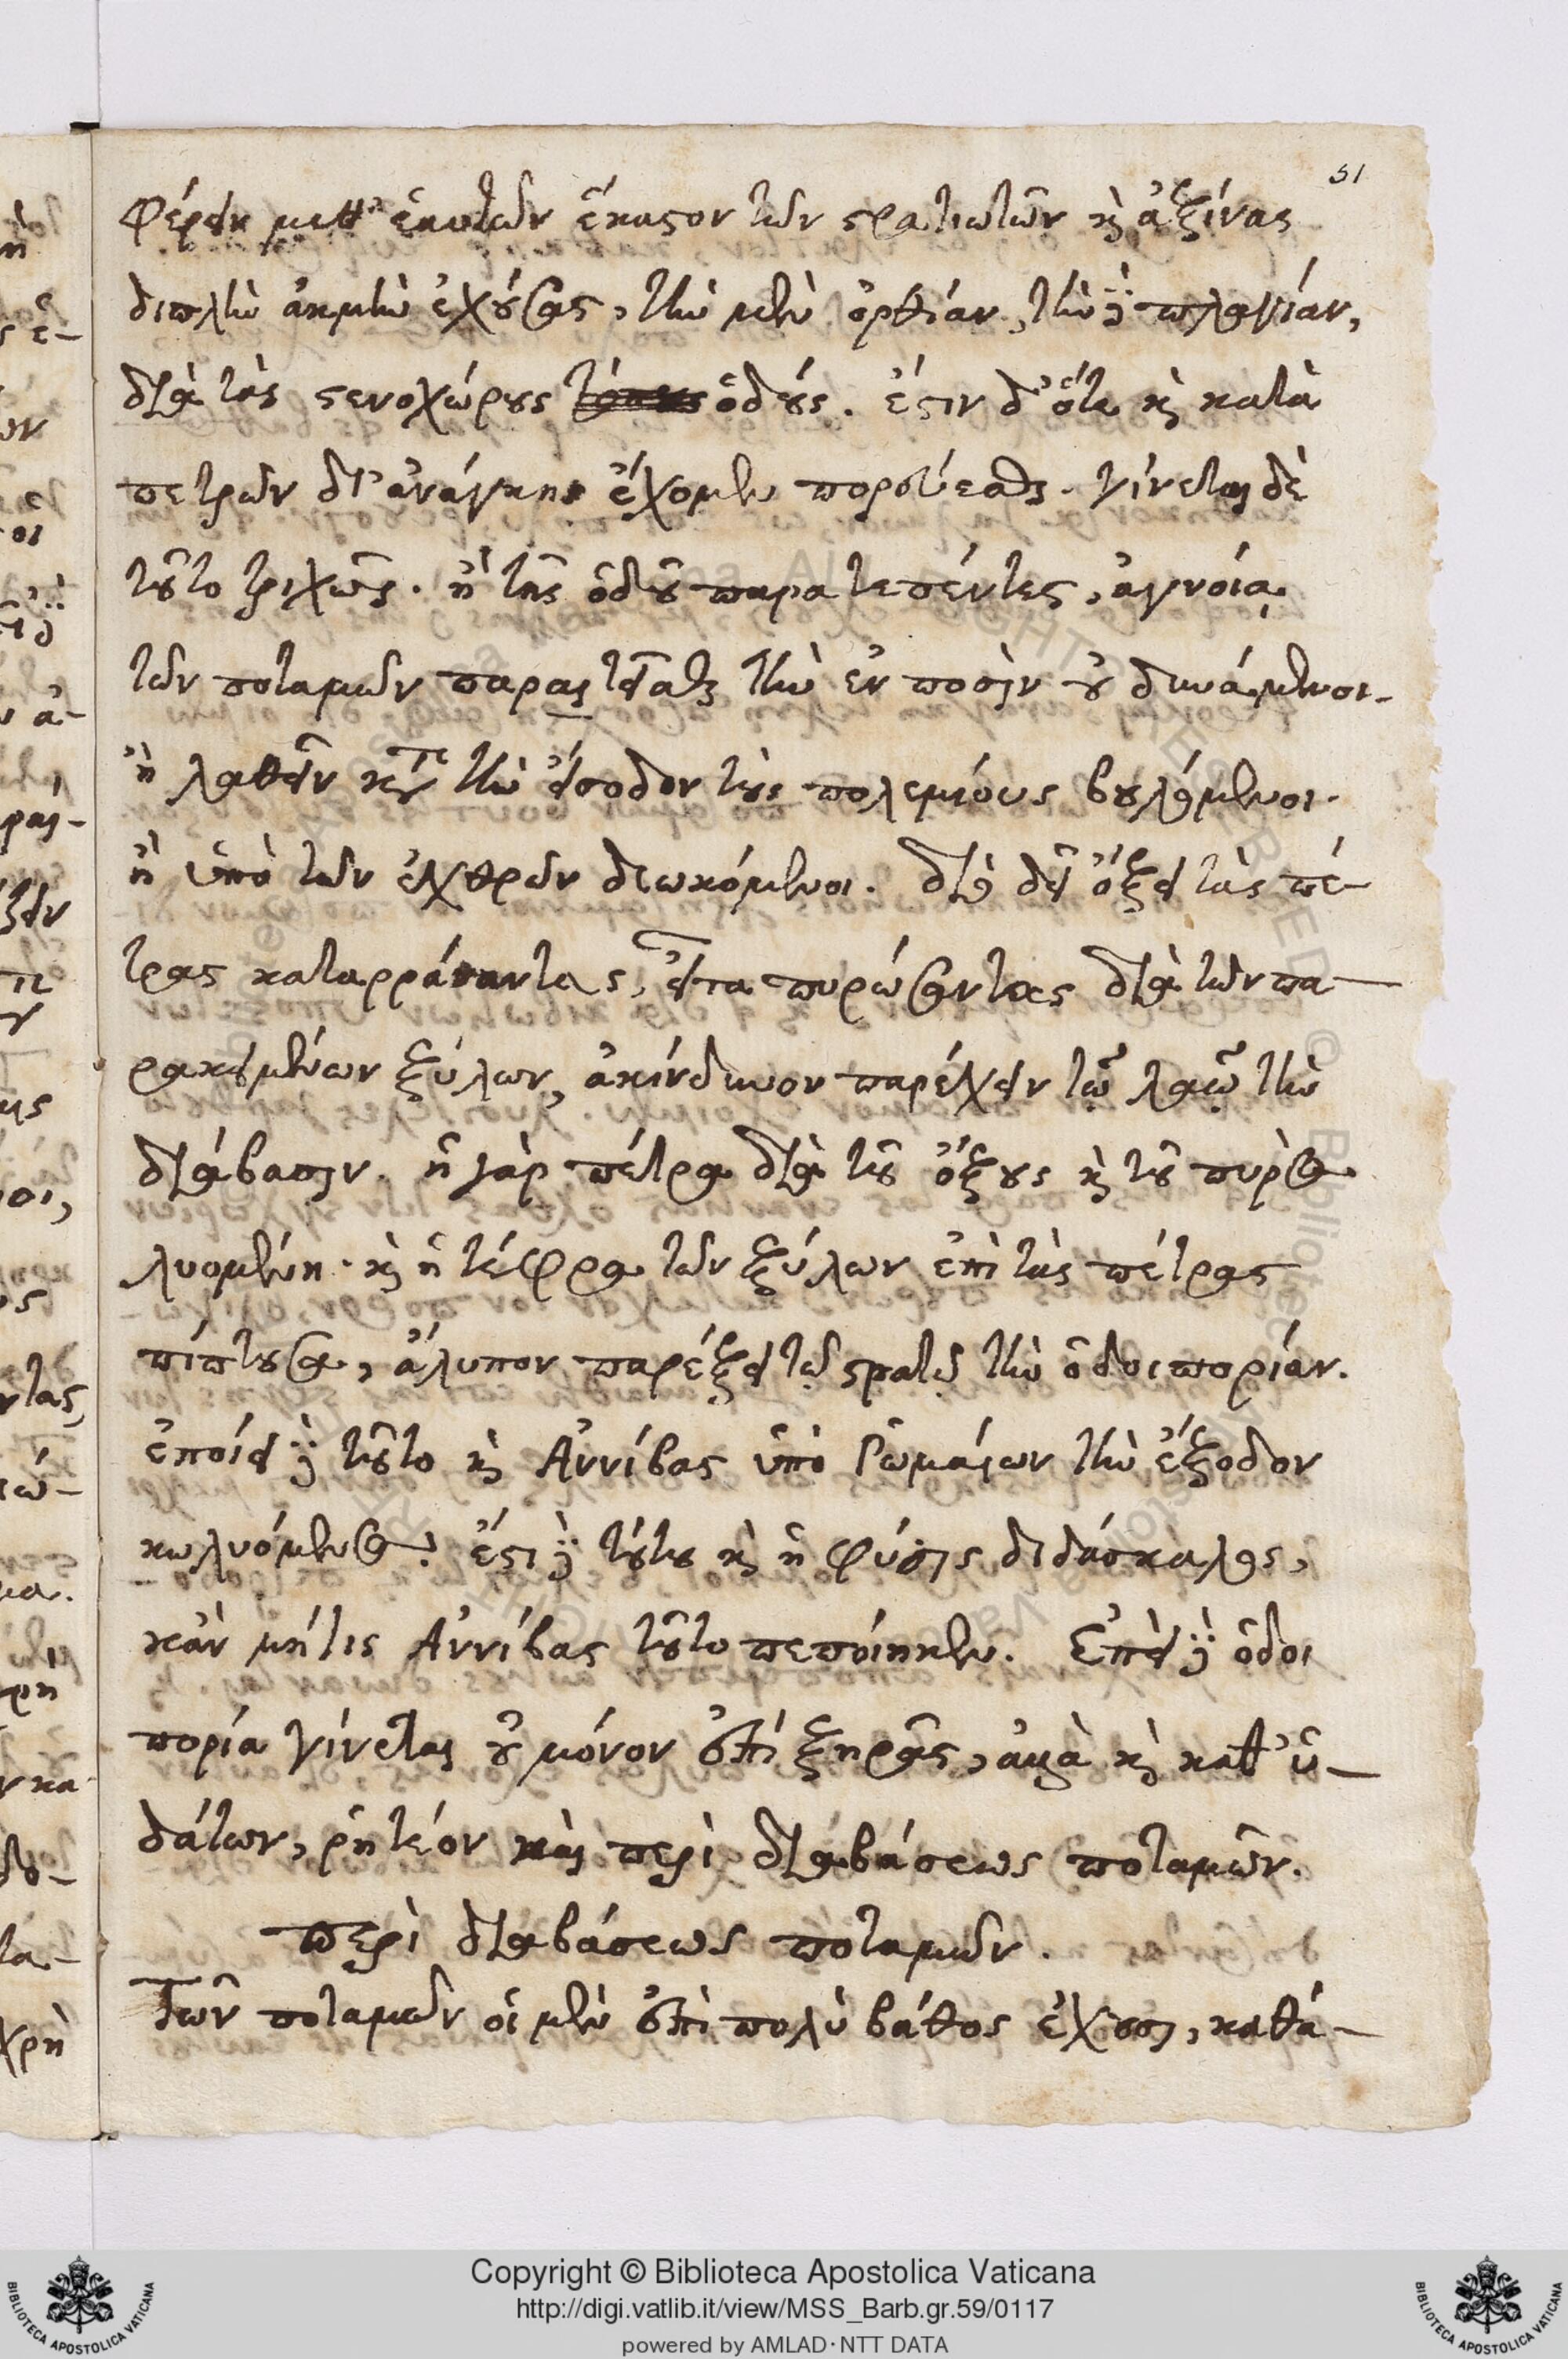 51
φέρειν μεθ' ἑαυτῶν ἕκαστον τῶν στρατιωτῶν κὶ ἀξίνας
διπλὴν ἀκμὴν ἐχούσας, τὴν μὲν ὀρθίαν, τὴν δὲ πλαγίαν,
διὰ τὰς στενοχώρους ὁδούς. ἔστιν δ' ὅτε κὶ κατὰ
πετρῶν δι' ἀνάγκης ἔχομεν πορεύεσθαι. γίνεται δὲ
τοῦτο τριχῶς. ἢ τῆς ὁδοῦ παρατεπέντες, ἀγνοίᾳ
τῶν ποταμῶν παραιτεῖσθαι τὴν ἐν ποσὶν οὐ δυνάμενοι.
ἢ λαθεῖν κατὰ τὴν εἴσοδον τοὺς πολεμίους βουλόμενοι.
ἢ ὑπὸ τῶν ἐχθρῶν διωκόμενοι. διὸ δεῖ ὄξει τὰς πέ-
τρας καταρράναντας, εἶτα πυρώσαντας διὰ τῶν πα-
ρακειμένων ξύλων, ἀκίνδυνον παρέχειν τῷ λαῷ τὴν
διάβασιν. ἡ γὰρ πέτρα διὰ τοῦ ὄξους κὶ τοῦ πυρὸς
λυομένη. κὶ ἡ τέφρα τῶν ξύλων ἐπὶ τὰς πέτρας
πίπτουσα, ἄλυπον παρέξει τῷ στρατῷ τὴν ὁδοιπορίαν.
ἐποίει δὲ τοῦτο κὶ Ἀννίβας ὑπὸ Ῥωμαίων τὴν ἔξοδον
κωλυόμενος. ἔστι δὲ τούτου κὶ ἡ φύσις διδάσκαλος,
κἂν μήτις Ἀννίβας τοῦτο πεποίηκεν. Ἐπεὶ δὲ ὁδοι
πορία γίνεται οὐ μόνον ἐπὶ ξηρᾶς, ἀλλὰ κὶ καθ' ὑ-
δάτων, ῥητέον καὶ περὶ διαβάσεως ποταμῶν.
Περὶ διαβάσεως ποταμῶν.
Τῶν ποταμῶν οἱ μὲν ἐπὶ πολὺ βάθος ἔχουσι, καθά-
Copyright © Biblioteca Apostolica Vaticana
http://digi.vatlib.it/view/MSS_Barb.gr.59/0117
powered by AMLAD·NTT DATA